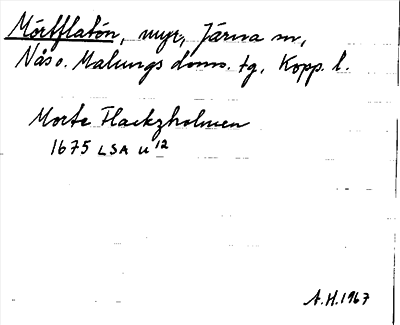 Mörtflatön, myr, Järna sn,
Nås o. Malungs doms. tg, Kopp. l.
Morte Flackzholmen
1675 LSA U 12
A.H. 1967